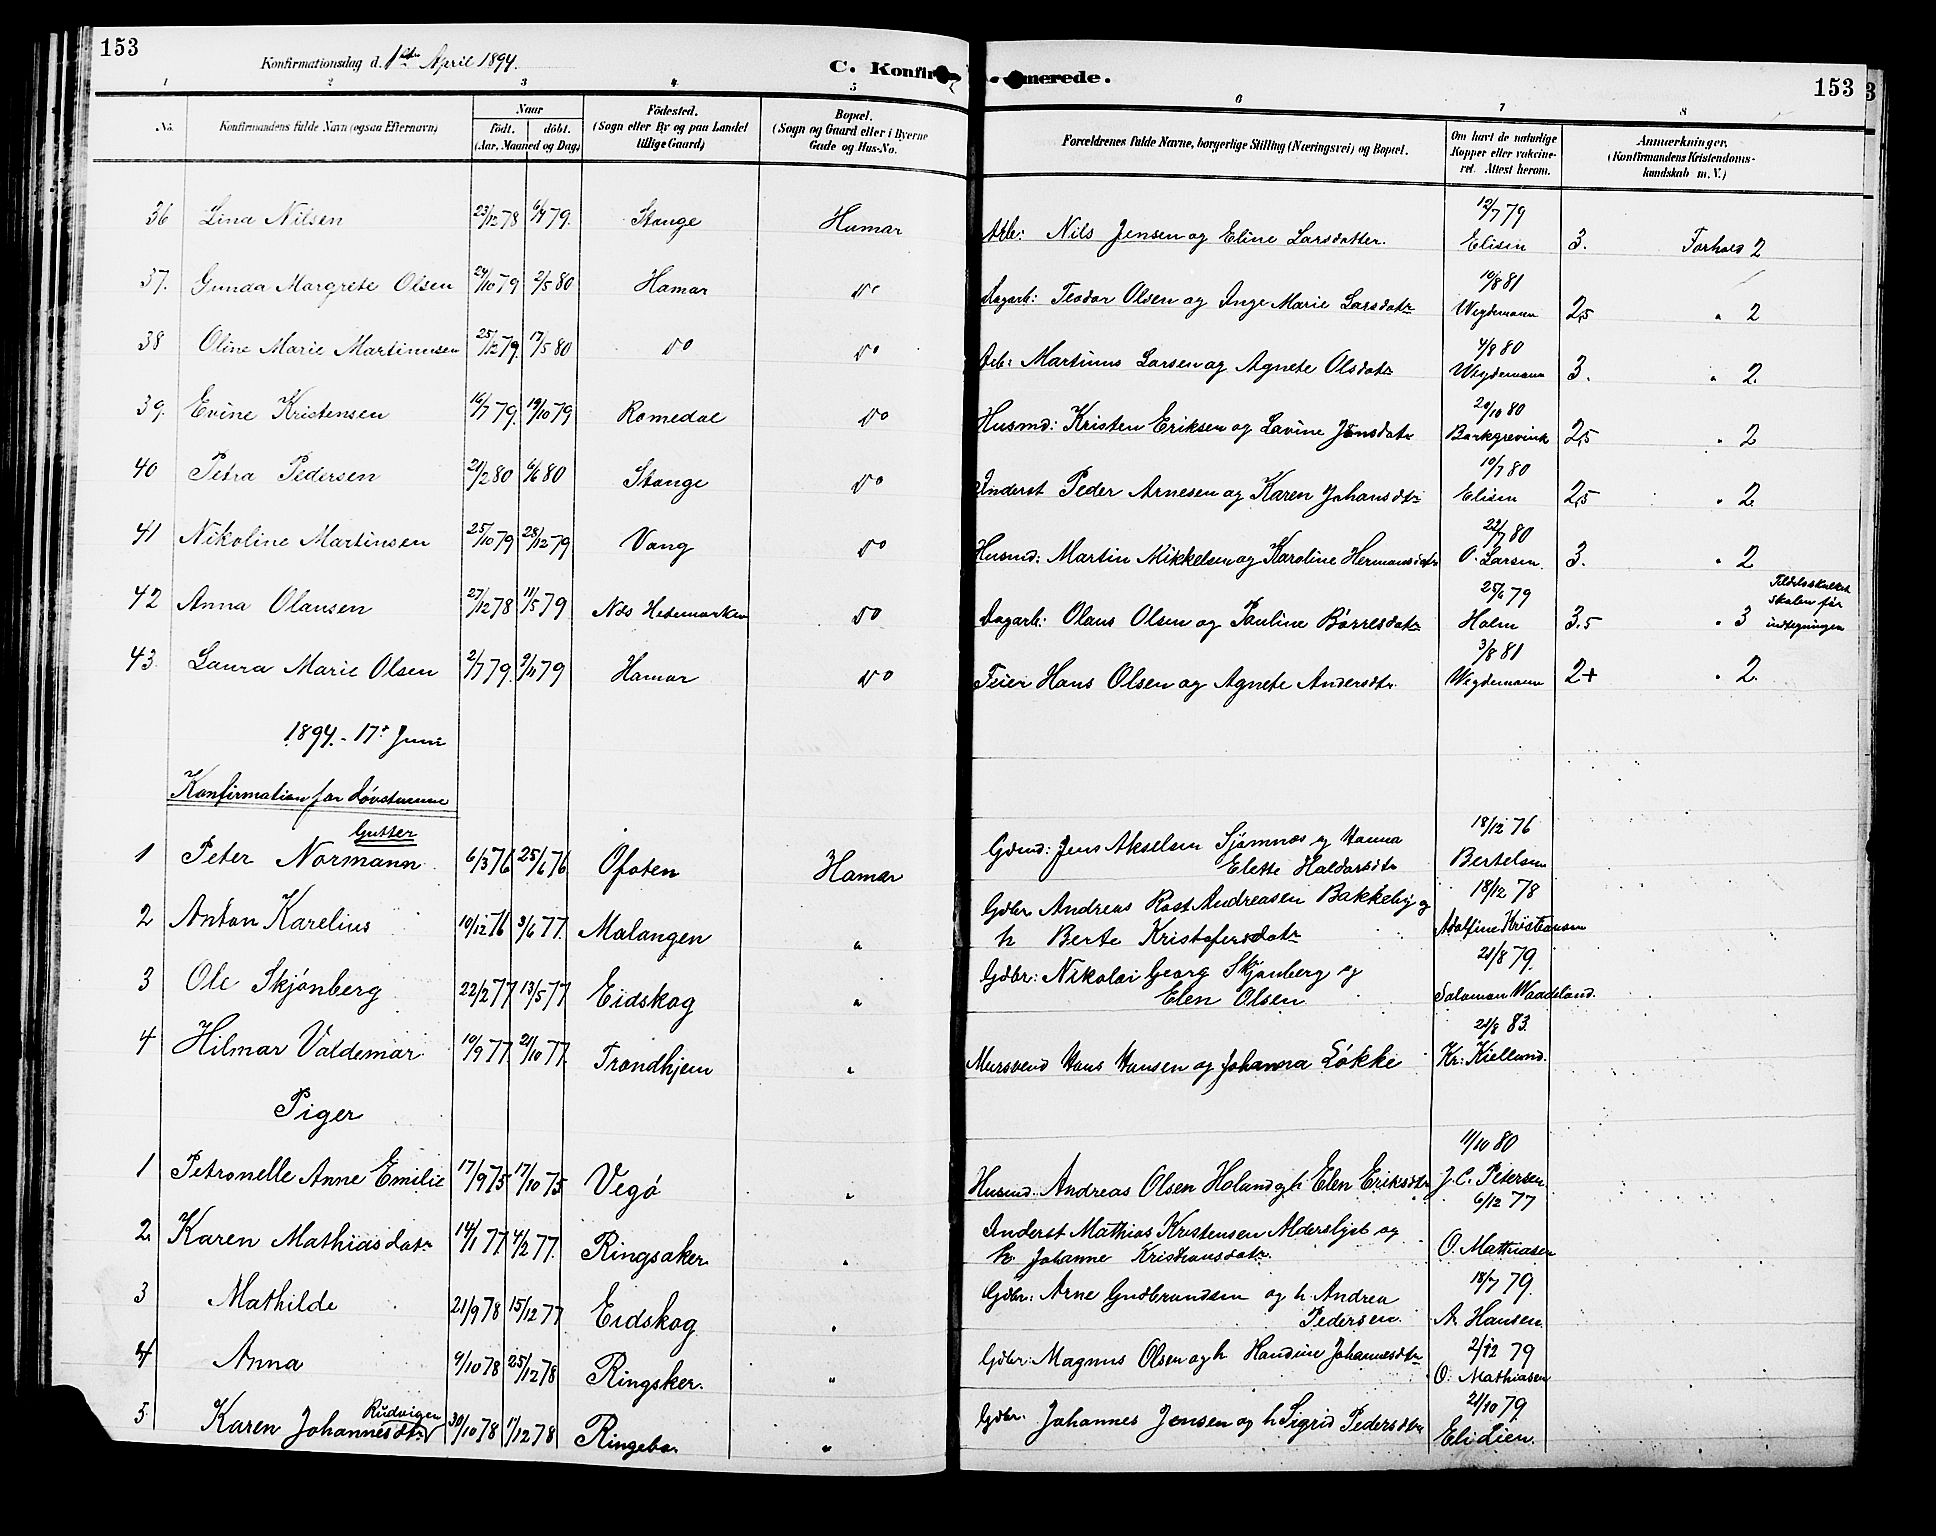 153
Konfirmationsdag d. 1ste April 1894.
C. Konfir merede.
153
1 2 3 4 5 6 7 8
No. Konfirmandens fulde Navn (ogsaa Efternavn) Naar födt. döbt. (Aar, Maaned og Dag) Födested. (Sogn eller By og paa Landet tillige Gaard) Bopæl. (Sogn og Gaard eller i Byerne Gade og Hus-No. Forældrenes fulde Navne, borgerlige Stilling (Næringsvei) og Bopæl. Om havt de naturlige Kopper eller vakcineret. Attest herom. Anmærkninger. (Konfirmandens Kristendomskundskab m. V.)
36 Lina Nilsen 23/12 78 6/4 79. Stange Hamar Arb: Nils Jensen og Eline Larsdatter. 12/7 79 Elisin 3. Forhold 2
37. Gunda Margrete Olsen 24/10 79 2/5 80 Hamar Do Dagarb: Teodor Olsen og Inge Marie Larsdatr 10/8 81 Wegdemann 2,5 " 2
38 Oline Marie Martinusen 25/12 79. 17/5 80 Do Do Arb: Martinus Larsen og Agnete Olsdatr 4/8 80 Wegdemann 3. " 2.
39. Evine Kristensen 16/7 79. 19/10 79 Romedal Do Husmd: Kristen Eriksen og Lavine Jensdatr 20/10 80 Barkgrevink 2,5 " 2
40 Petra Pedersen 21/2 80 6/6 80 Stange Do Inderst Peder Arnesen og Karen Johansdtr 10/7 80 Elisin 2,5 " 2.
41 Nikoline Martinsen 25/10 79 28/12 79 Vang Do Husmd: Martin Mikkelsen og Karoline Hermansdtr 22/7 80 O. Larsen. 3. " 2
42 Anna Olausen 27/12 78 11/5 79 Nds Hedemarken Do Dagarb: Olaus Olsen og Pauline Börresdatr 25/6 79 Holm 3.5 " 3 skolen før
43. Laura Marie Olsen 2/7 79. 9/11 79 Hamar Do Feier Hans Olsen og Agnete Andersdtr. 3/8 81 Wegdemann 2+ " 2.
1894. - 17de Juni
Konfirmation for Døvstumme
Gutter
1 Peter Normann 6/3 76 25/6 76 Ofoten Hamar Gdmd: Jens Akselsen Sjømnæs og Hanna Elette Haldorsdtr 18/12 76 Bertelsen
2 Anton Karelius 10/12 76 3/6 77. Malangen " Gdbr Andreas Rost Andreasen Bakkeby og h Berte Kristofersdatr 18/12 78 Adolfine Kristiansen
3 Ole Skjønberg 22/2 77 13/5 77 Eidskog " Gdbr: Nikolai Georg Skjønberg og Elen Olsen 21/8 79. Salamon Waadeland.
4 Hilmar Valdemar 10/9 77. 21/10 77. Trondhjem " Mursvend Hans Hansen og Johanna Løkke 21/8 83. Kr: Kielland.
Piger
1 Petronelle Anne Emilie 17/9 75 17/10 75 Vegø " Husmd. Andreas Olsen Holand og h Elen Eriksdtr 11/10 80 J. C. Petersen
2. Karen Mathiasdatr 14/1 77 4/2 77. Ringsaker " Inderst Mathias Kristensen Alderslyst og h. Johanne Kristiansdatr. 6/12 77 O. Mathiasen
3 Mathilde 21/9 78 15/12 77 Eidskog " Gdbr: Arne Gudbrandsen og h Andrea Pedersen. 18/7 79. A. Hansen.
4 Anna 9/10 78 25/12 78 Ringsker. " Gdbr: Magnus Olsen og h Handine Johannesdtr 2/12 79 O. Mathiasen
5. Karen Johannesdtr Rudvigen 30/10 78 1/12 78 Ringebo. " Gdbr. Johannes Jensen og h Sigrid Pedersdtr 21/10 79. Eli Lien.